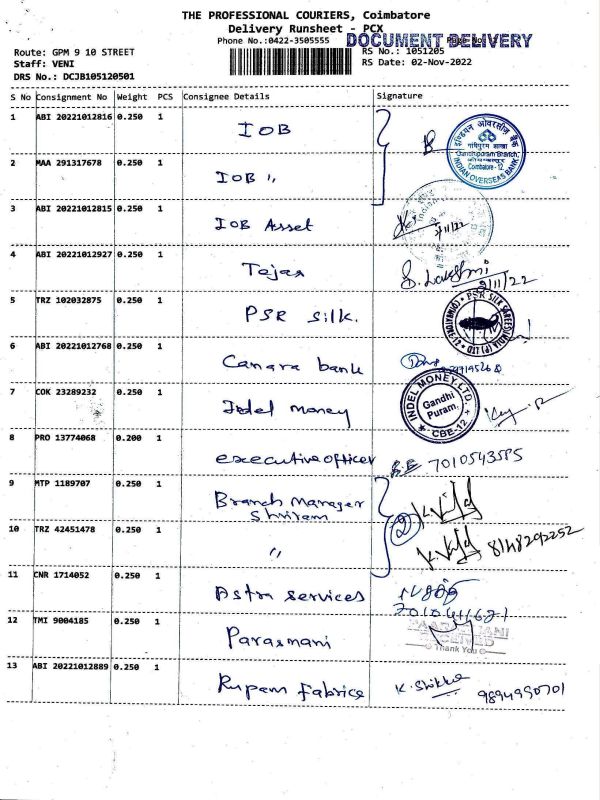 THE PROFESSIONAL COURIERS, Coimbatore
Delivery Runsheet - PCX
Phone No.:0422-3505555
DOCUMENT DELIVERY
Route: GPM 9 10 STREET
RS No.: 1051205
Staff: VENI
RS Date: 02-Nov-2022
DRS No.: DCJB105120501
S No Consignment No Weight PCS Consignee Details Signature
1 ABI 20221012816 0.250 1 IOB
इण्डियन ओवरसीज़ बैंक
Gandhipuram Branch
Coimbatore - 12.
INDIAN OVERSEAS BANK
2 MAA 291317678 0.250 1 IOB "
3 ABI 20221012815 0.250 1 IOB Asset
2/11/22
4 ABI 20221012927 0.250 1 Tejas S. Lakshmi
2/11/22
5 TRZ 102032875 0.250 1 PSR silk.
6 ABI 20221012768 0.250 1 Canara bank
7 COK 23289232 0.250 1 Indel money
INDEL MONEY LTD.
Gandhi
Puram.
CBE-12
8 PRO 13774068 0.200 1 executive officer 7010543585
9 MTP 1189707 0.250 1 Branch Manager
Shriram
2
10 TRZ 42451478 0.250 1 " 8148292252
11 CNR 1714052 0.250 1 Astra services
12 TMI 9004185 0.250 1 Parasmani
RECEIVED
Thank You
13 ABI 20221012889 0.250 1 Rupam Fabrics 9894990701